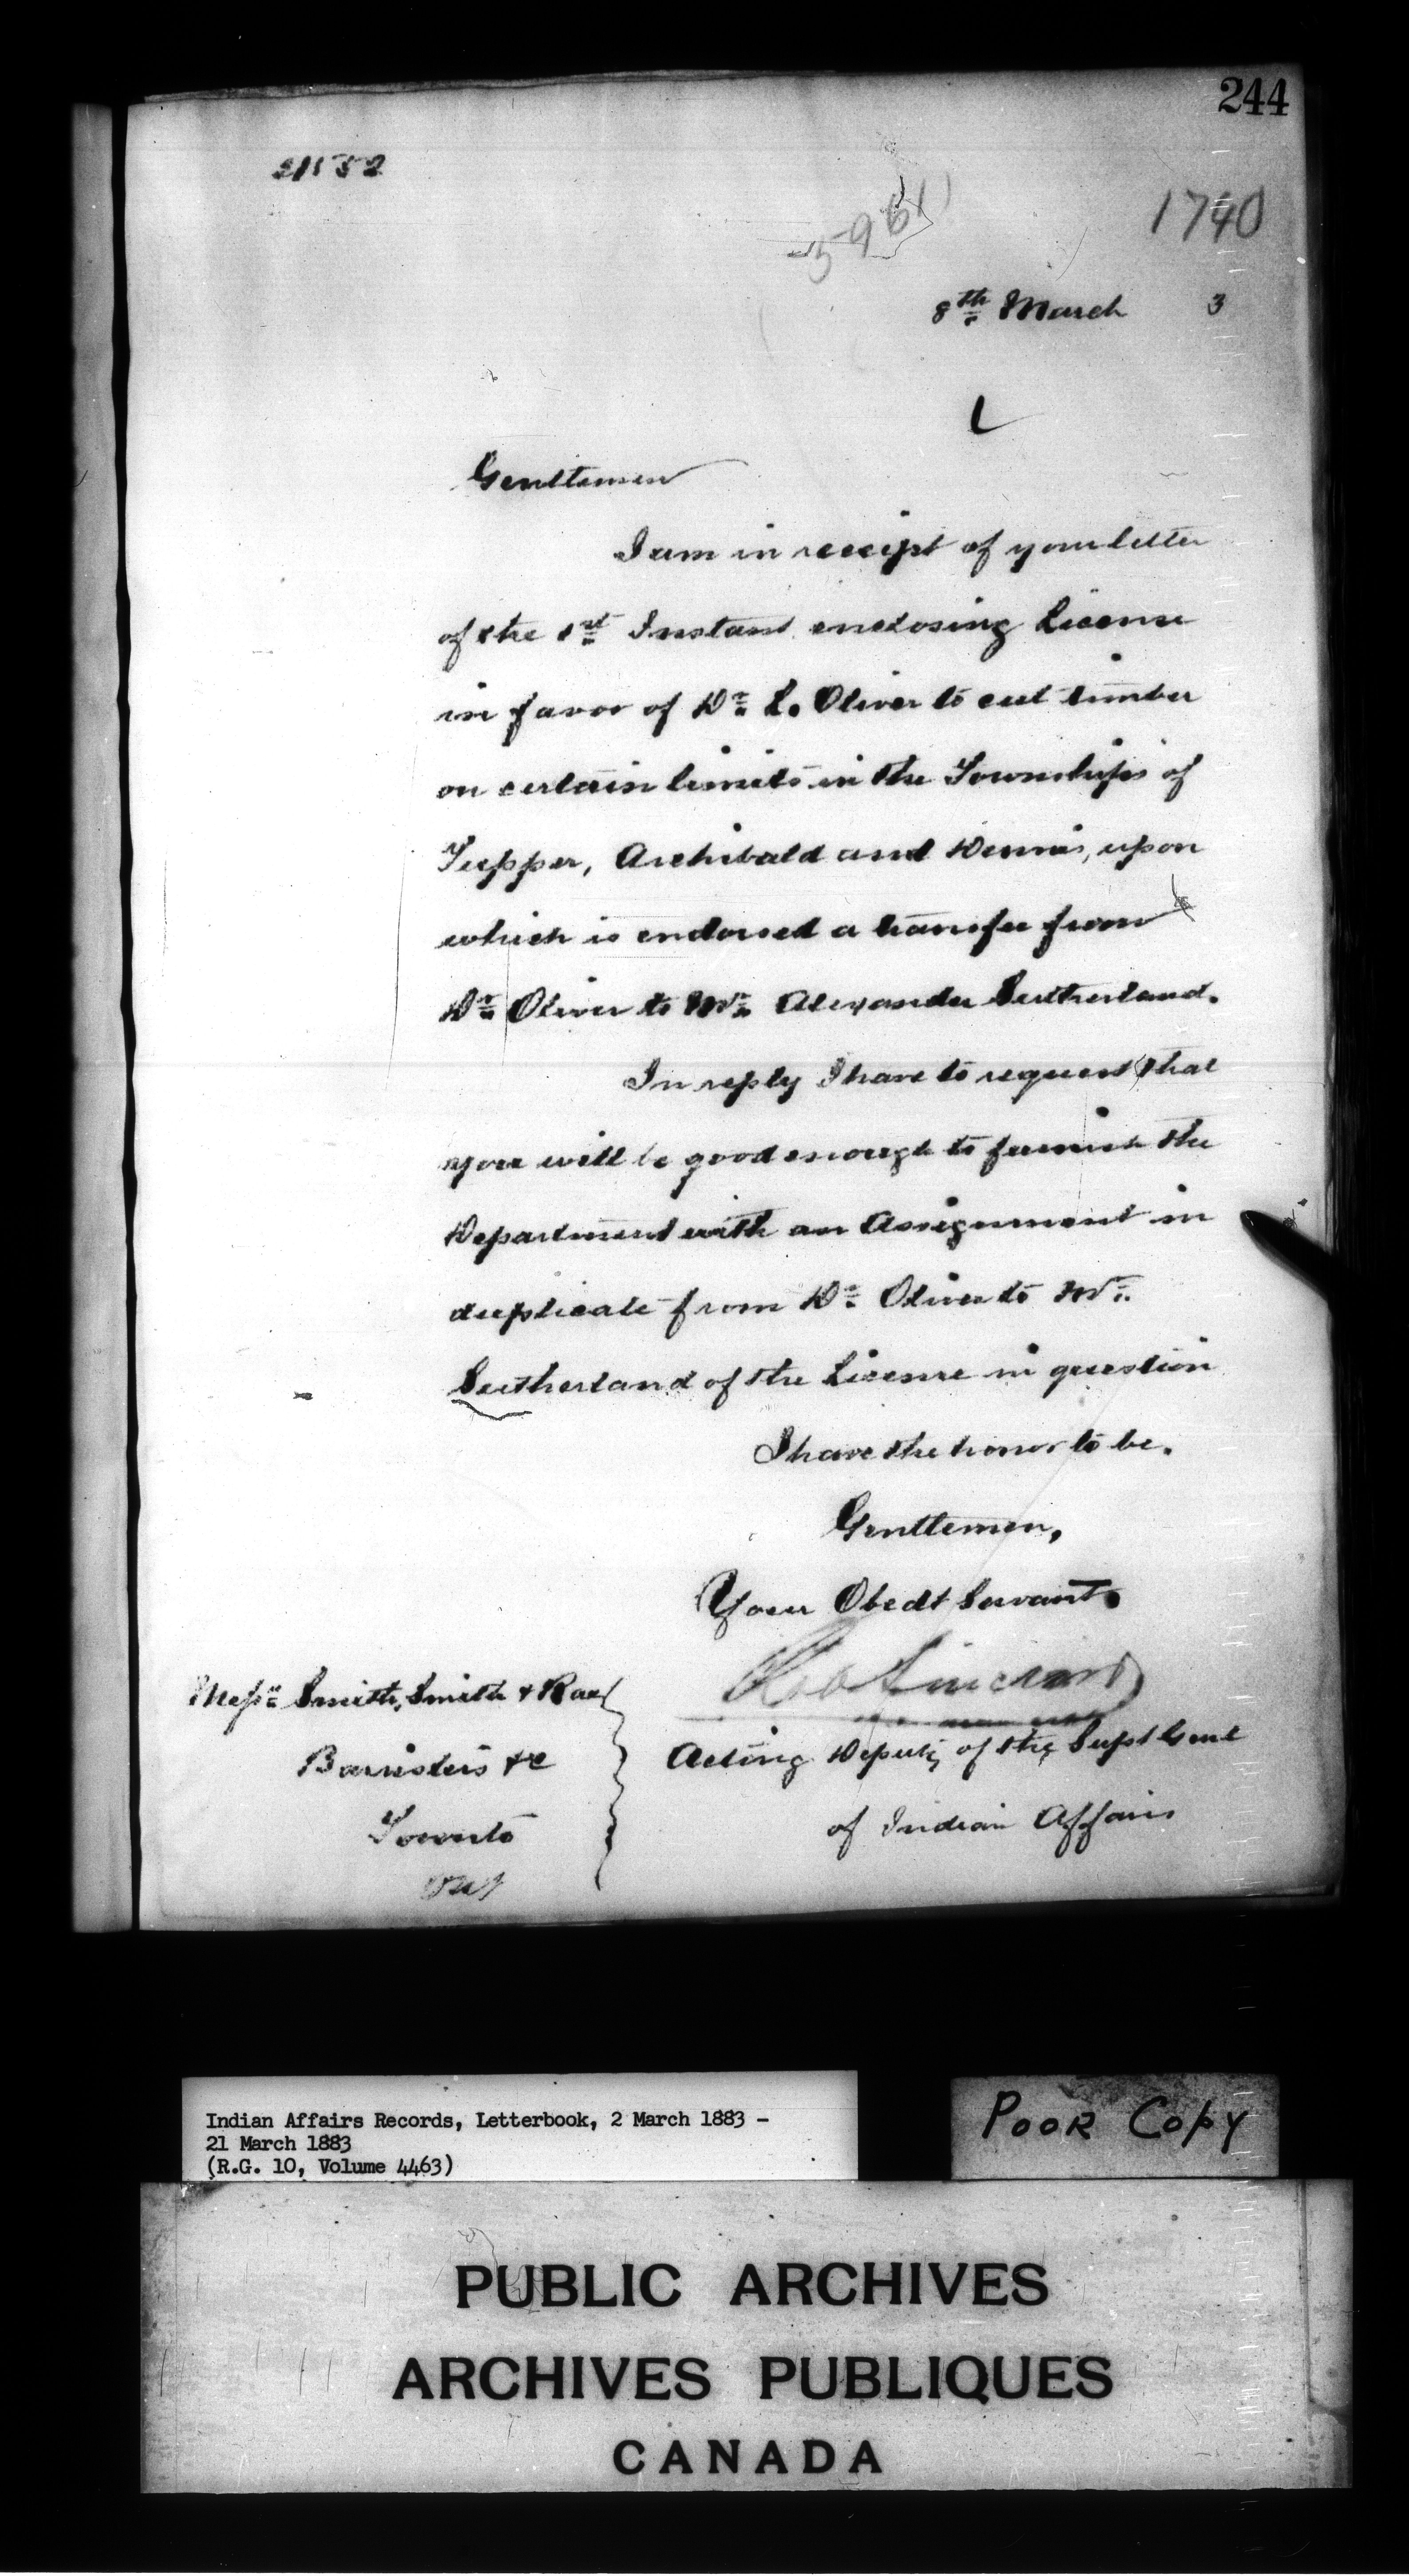 244
21552
5961
1740
8th March 3
Gentlemen
I am in receipt of your letter
of the 1st Instant enclosing License
in favor of Dr. L. Oliver to cut timber
on certain limits in the Townships of
Tupper, Archibald and Dennis, upon
which is endorsed a transfer from
Dr. Oliver to Mr. Alexander Sutherland.
In reply I have to request that
you will be good enough to furnish the
Department with an Assignment in
duplicate from Dr. Oliver to Mr.
Sutherland of the License in question
I have the honor to be.
Gentlemen,
Your Obedt Servant.
Rob Sinclair
Acting Deputy of the Supt Genl
of Indian Affairs
Messrs Smith, Smith & Rae
Barristers &c
Toronto
Ont
Indian Affairs Records, Letterbook, 2 March 1883 -
21 March 1883
(R.G. 10, Volume 4463)
POOR COPY
PUBLIC ARCHIVES
ARCHIVES PUBLIQUES
CANADA